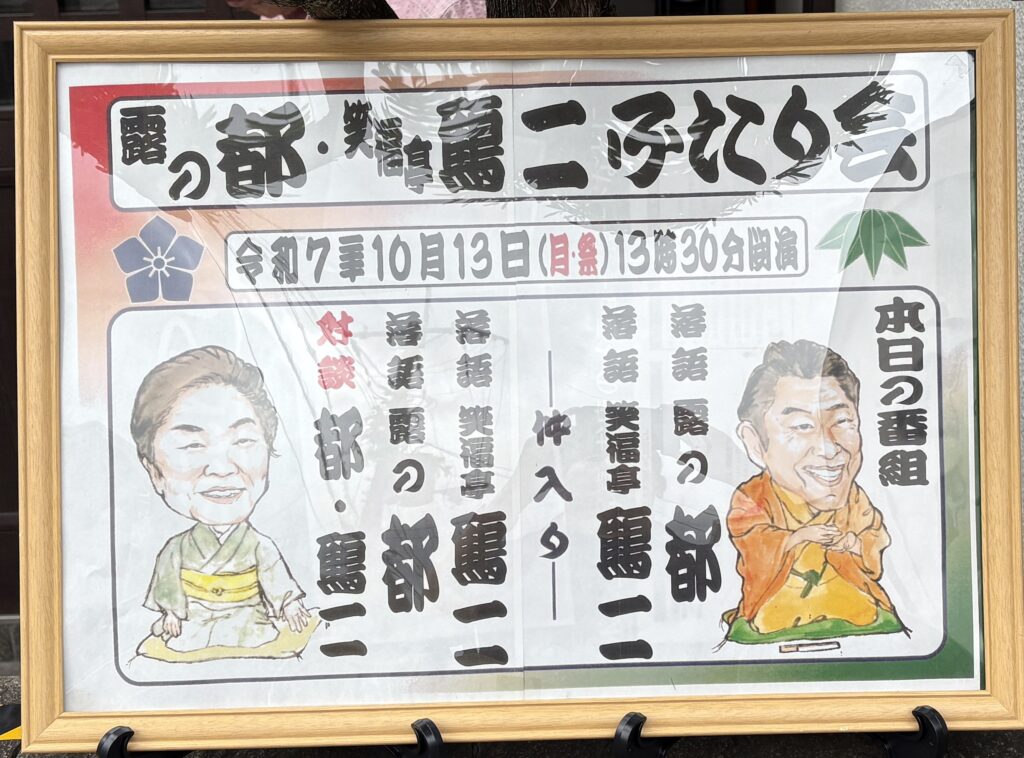 露の都・笑福亭鶴二ふたり会
令和7年10月13日(月・祭)13時30分開演
本日の番組
落語 露の 都
落語 笑福亭 鶴二
仲入り
落語 笑福亭 鶴二
落語 露の 都
対談 都・鶴二